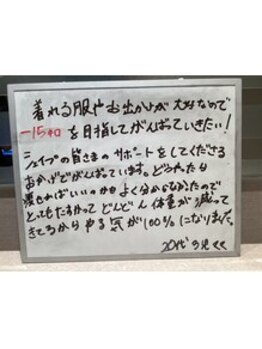 着れる服やお出かけが大好なので
-15キロを目指してがんばっていきたい！
シェイプの皆さまのサポートをしてくださる
おかげでがんばています。どうやったら
いいのかも よく分からなかったので
とってもたすかって どんどん 体重が 減って
きてるから やる気が100%になりました。
20代